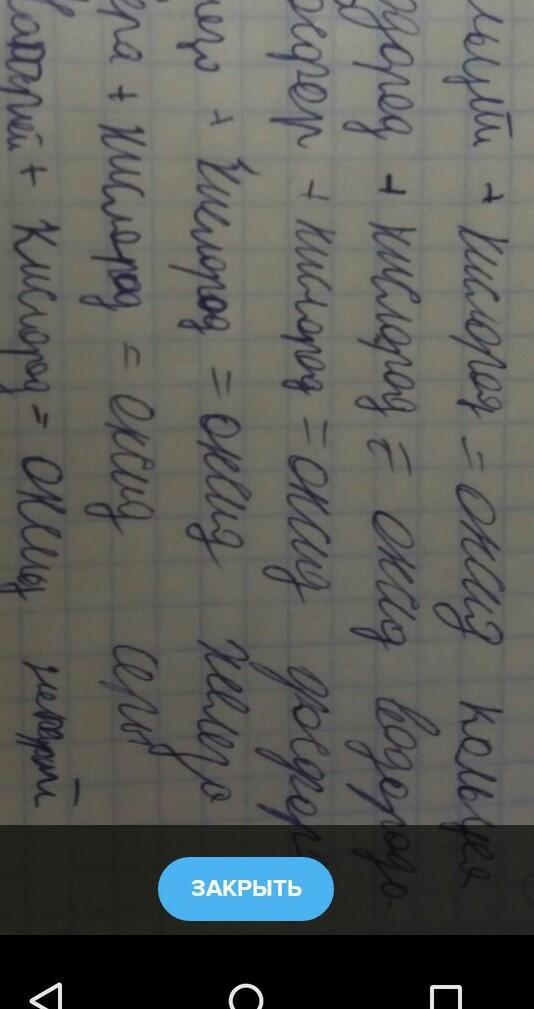 льций + кислород = оксид кальция
дород + кислород = оксид водорода
осфор + кислород = оксид фосфор
лезо + кислород = оксид железо
ера + кислород = оксид серы
натрий + кислород = оксид
ЗАКРЫТЬ